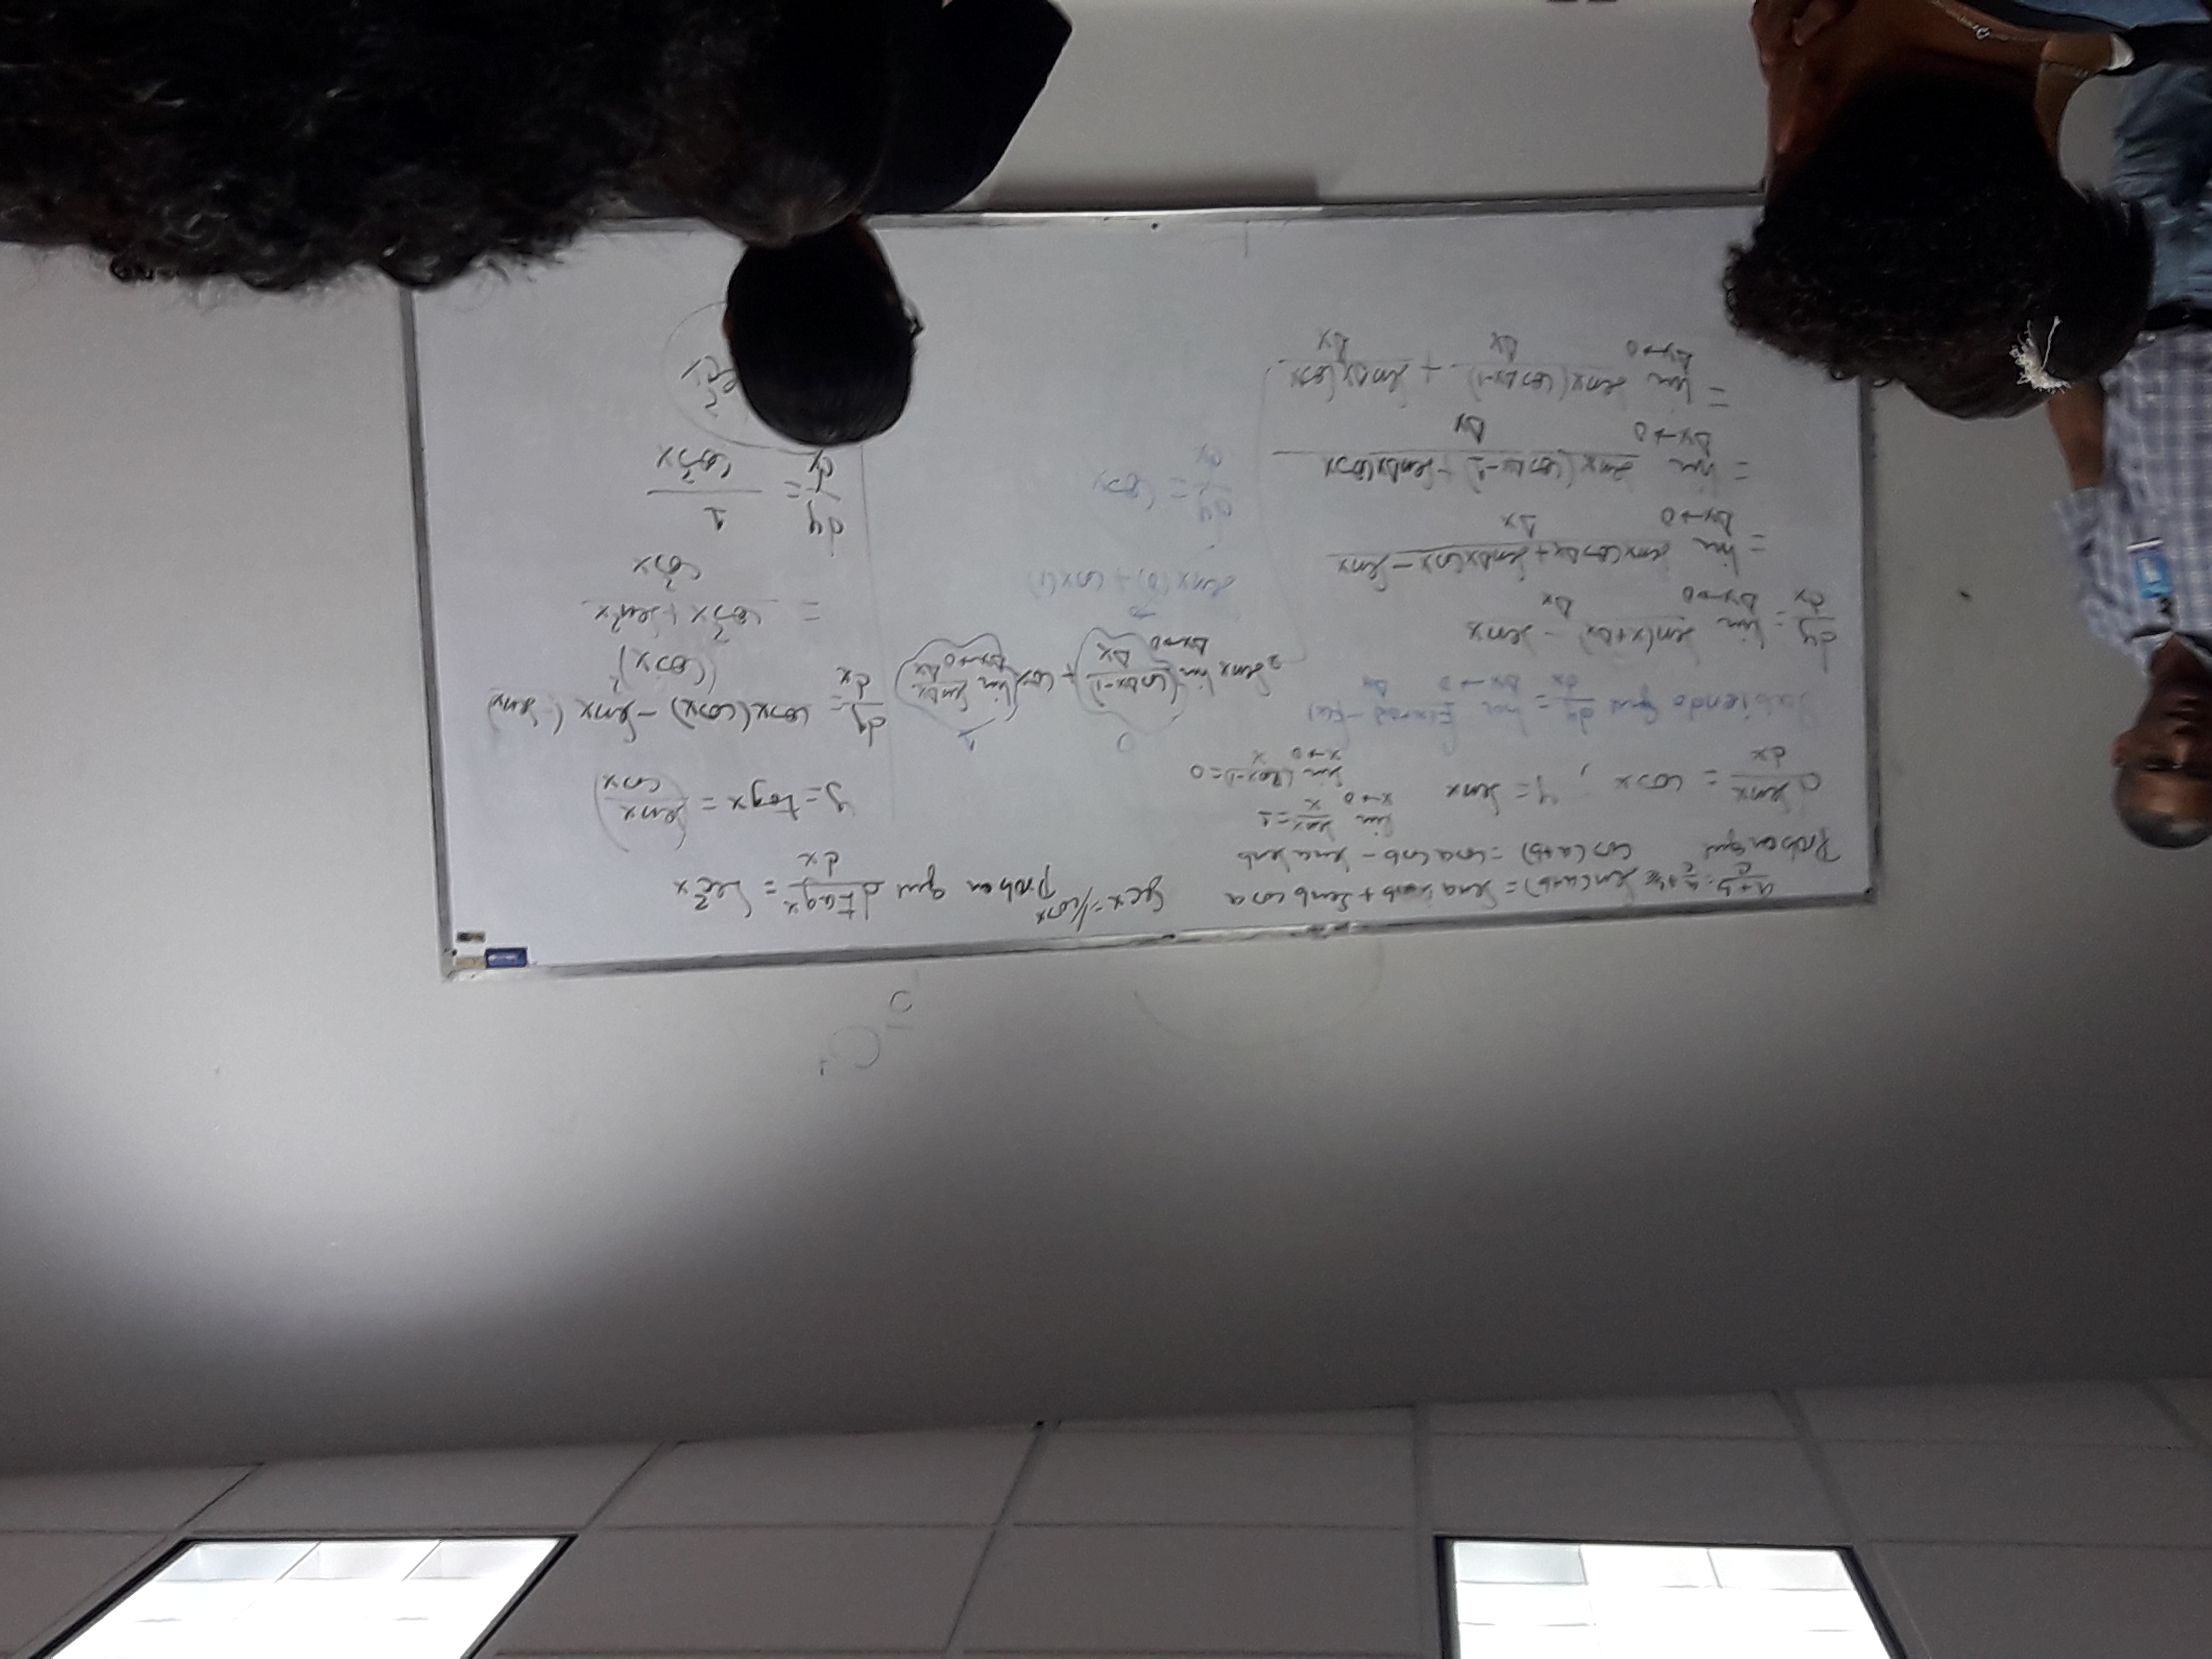 (a+b)/c = a/c + b/c Sen(a+b) = Sena cosb + Senb cosa
Probar que cos(a+b) = cosa cosb - sena senb
lim x→0 senx/x = 1
d Senx/dx = cosx ; y = Senx
lim x→0 (cosx-1)/x = 0
Sabiendo que dy/dx = lim Δx→0 F(x+Δx) - F(x) / Δx
dy/dx = lim Δx→0 Sen(x+Δx) - Senx / Δx
= lim Δx→0 Senx cosΔx + SenΔx cosx - Senx / Δx
= lim Δx→0 Senx(cosΔx-1) + SenΔx cosx / Δx
= lim Δx→0 Senx(cosΔx-1)/Δx + SenΔx Cosx/Δx
0 1
= Senx lim Δx→0 (cosΔx-1)/Δx + cosx lim Δx→0 SenΔx/Δx
Senx(0) + cosx(1)
dy/dx = Cosx
Sec x = 1/cosx
Probar que d tagx/dx = Sec²x
y = tagx = (Senx/cosx)
dy/dx = cosx(cosx) - Senx(-Senx) / (cosx)²
= cos²x + Sen²x / cos²x
dy/dx = 1/cos²x
ec²x